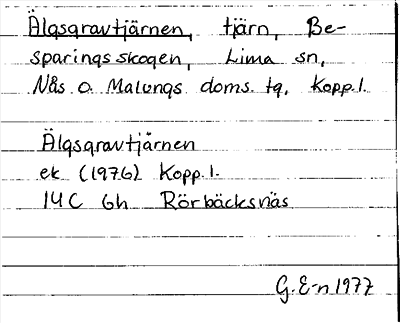 Älgsgravtjärnen, tjärn, Be-
sparingsskogen, Lima sn,
Nås o. Malungs doms. tg, Kopp. l.
Älgsgravtjärnen
ek (1976) Kopp. l.
14 C 6h Rörbäcksnäs
G. E-n 1977